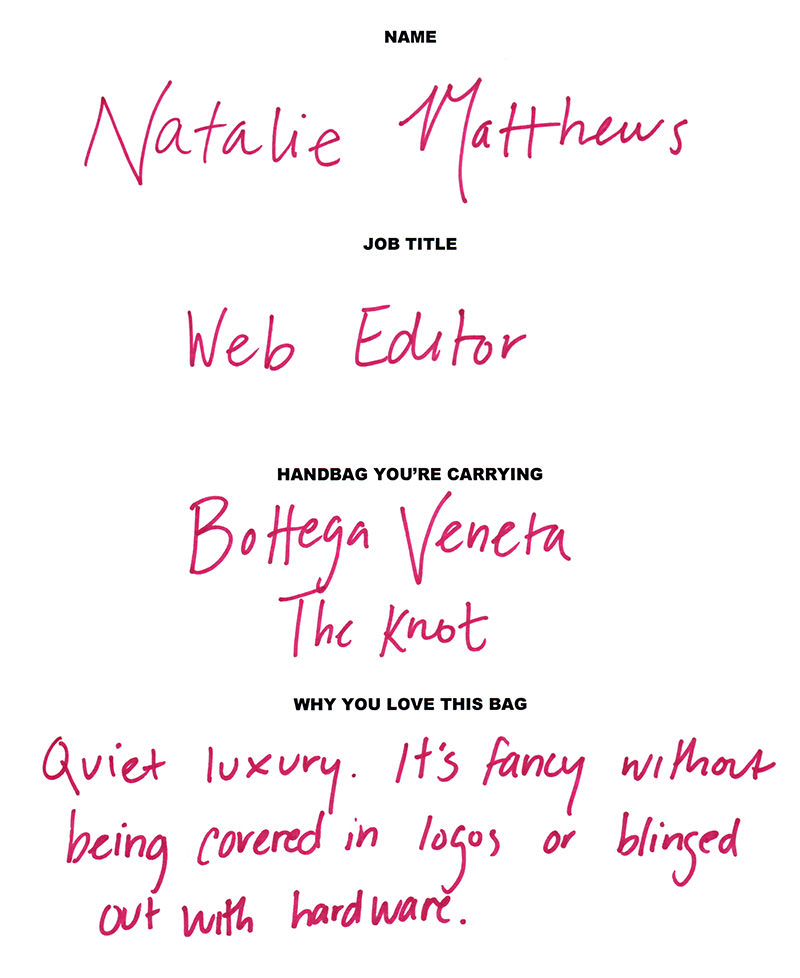 NAME
Natalie Matthews
JOB TITLE
Web Editor
HANDBAG YOU'RE CARRYING
Bottega Veneta
The Knot
WHY YOU LOVE THIS BAG
Quiet luxury. It's fancy without
being covered in logos or blinged
out with hardware.